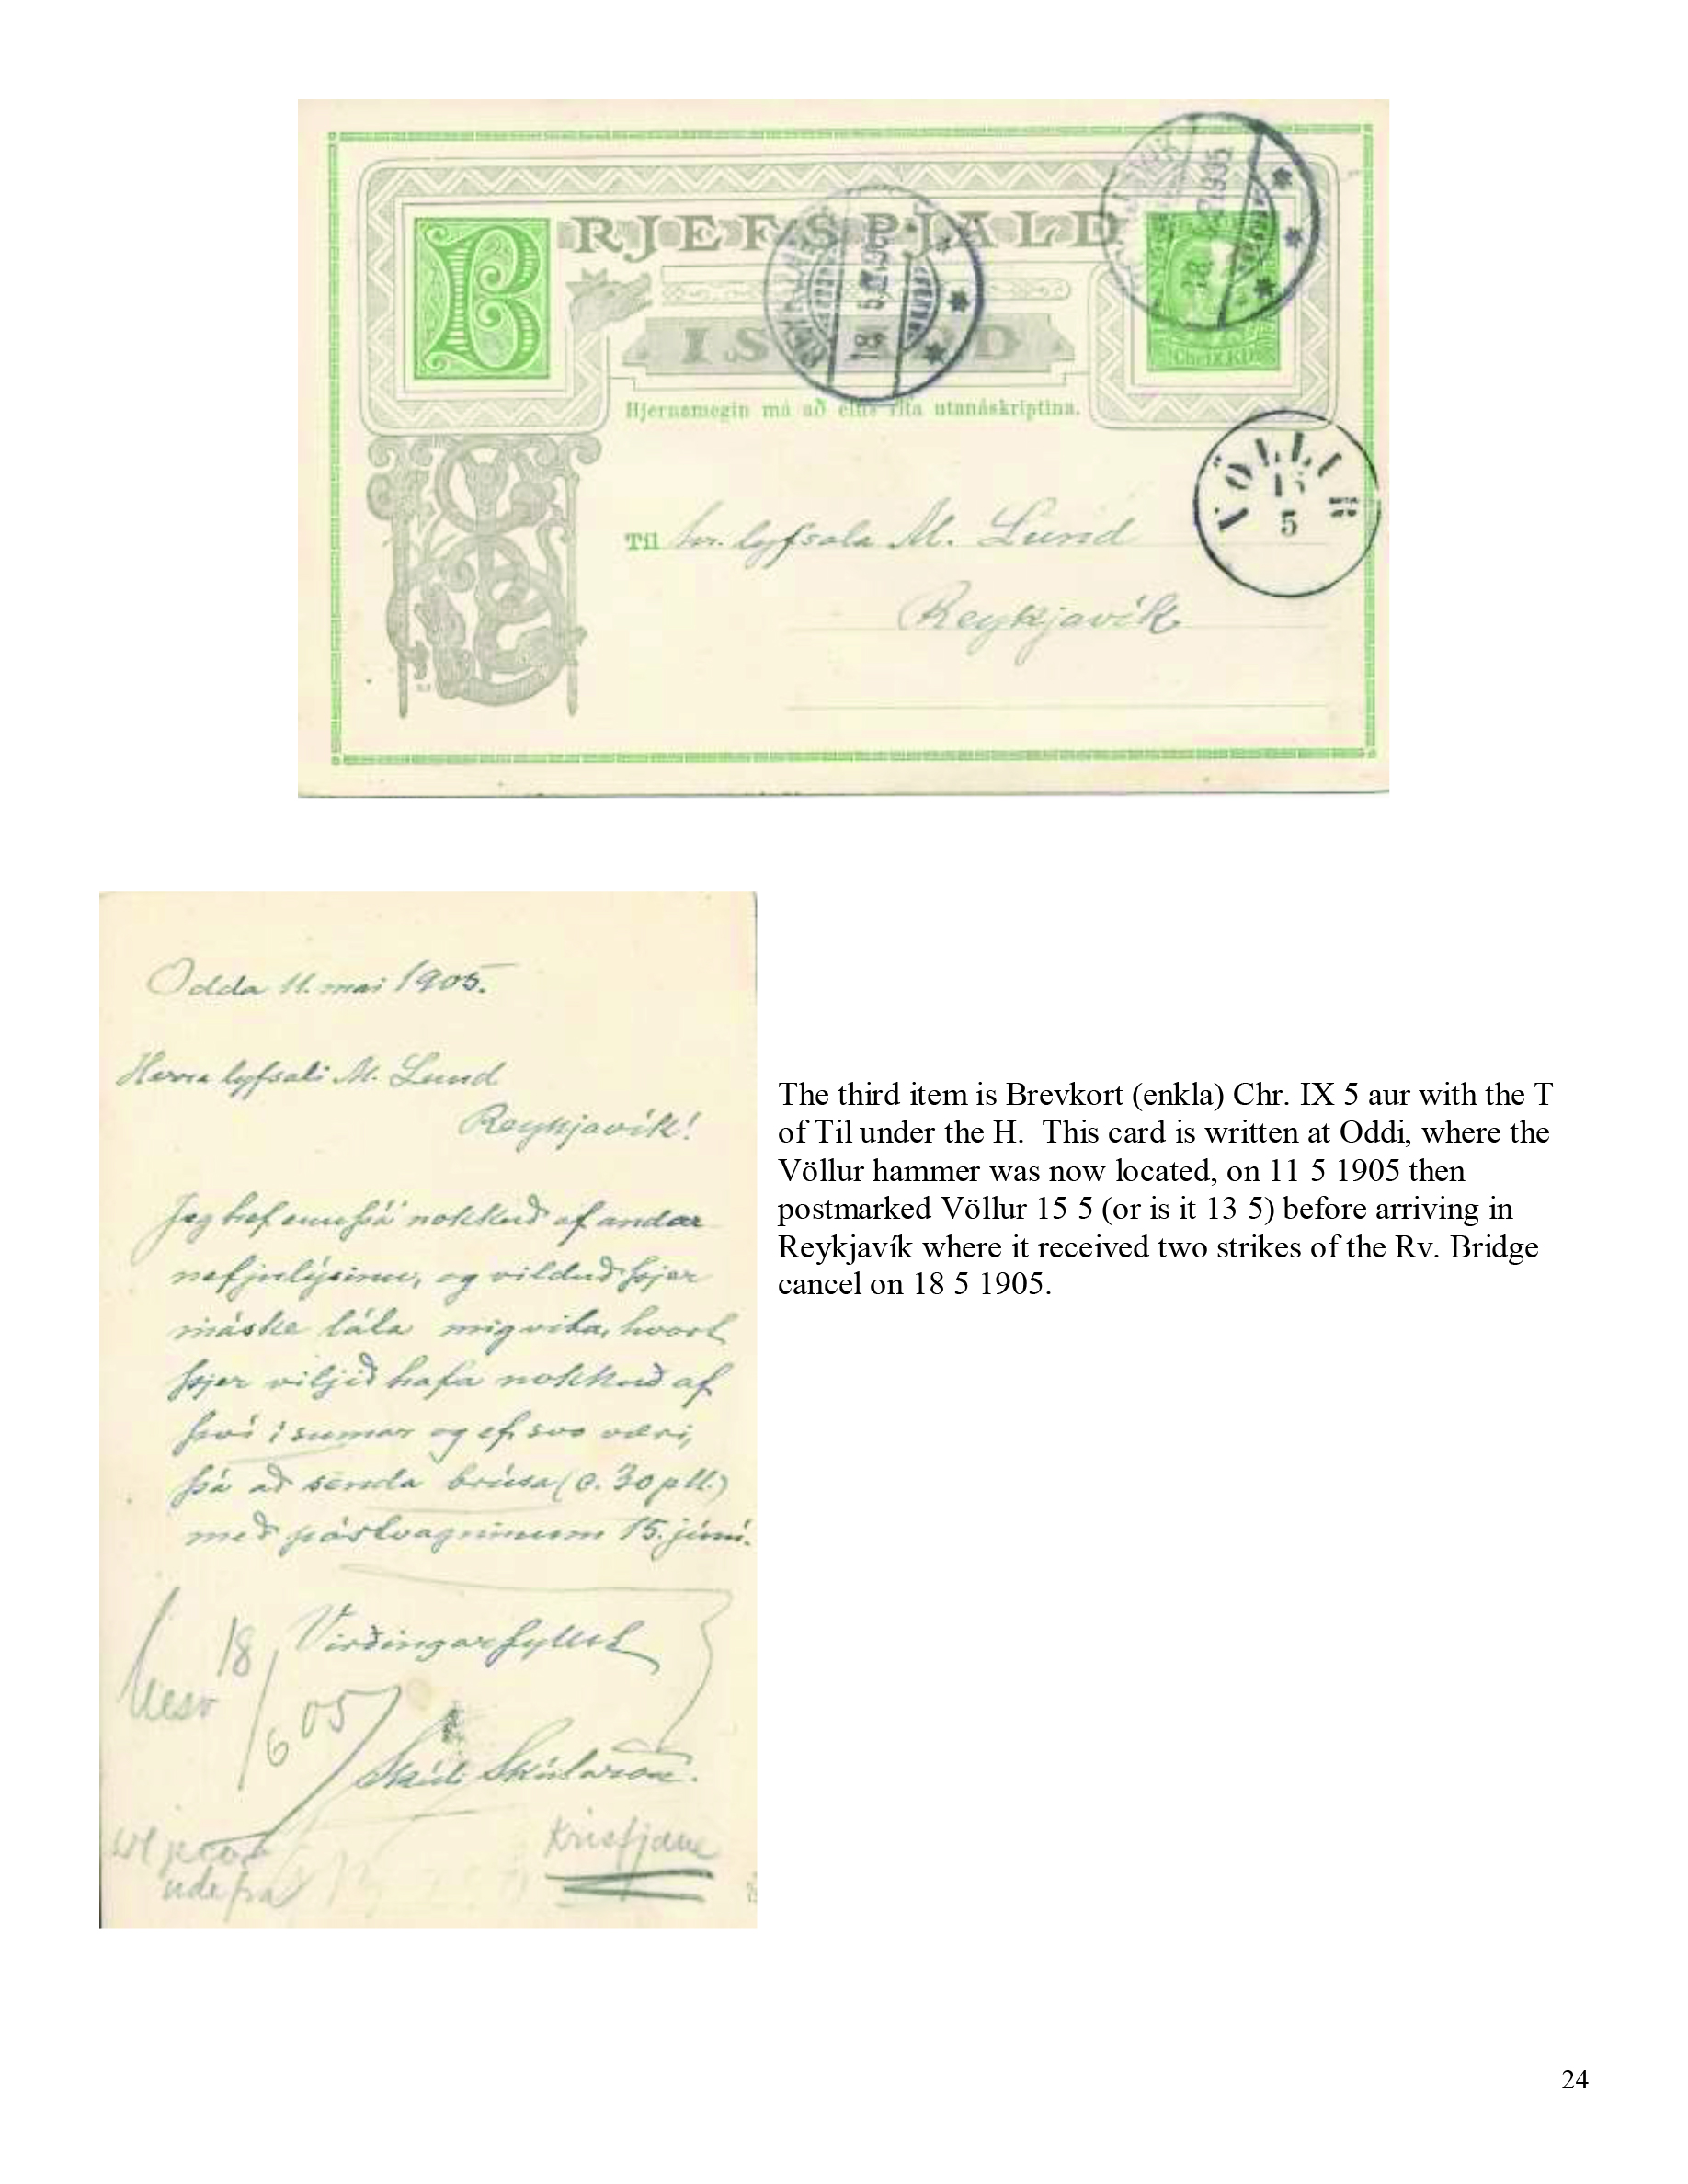 BRJEFSPJALD
ÍSLAND
Hjernamegin má að eins rita utanáskriptina.
REYKJAVIK
18. 5. 1905
VÖLLUR
5
Chr IX.
Til hr. lyfsala M. Lund
Reykjavík
Odda 11. mai 1905.
Herra lyfsali M. Lund
Reykjavík!
Jeg hef ennþá nokkuð af andar
nefjulýsinu, og vilduð þjer
máske láta mig vita, hvort
þjer viljið hafa nokkuð af
því í sumar og ef svo væri,
þá að senda brúsa (c. 30 pt.)
með póstvagninum 15. júní.
Virðingarfyllst
18/6 05
Skúli Skúlason.
Kristjane
udefra
The third item is Brevkort (enkla) Chr. IX 5 aur with the T
of Til under the H. This card is written at Oddi, where the
Völlur hammer was now located, on 11 5 1905 then
postmarked Völlur 15 5 (or is it 13 5) before arriving in
Reykjavík where it received two strikes of the Rv. Bridge
cancel on 18 5 1905.
24